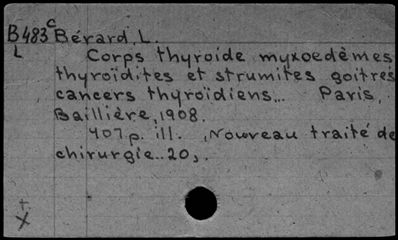 B483 c Bérard, L.
L Corps thyroide myxoedèmes
thyroïdites et strumites goitres
cancers thyroïdiens... Paris,
Baillière, 1908.
407 p. ill. (Nouveau traité de
chirurgie.. 20).